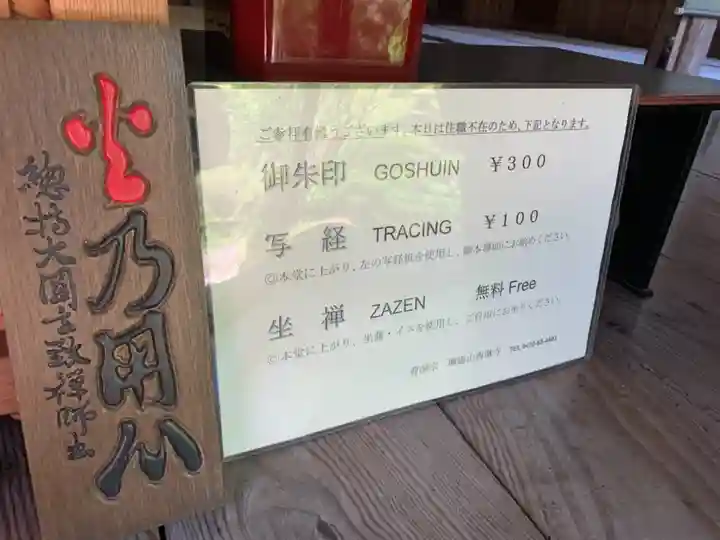 火乃用心
ご参拝有難うございます。本日は住職不在のため、下記となります。
御朱印 GOSHUIN ￥300
写経 TRACING ￥100
◎本堂に上がり、左の写経机を使用し、御本尊前にお納めください。
坐禅 ZAZEN 無料 Free
◎本堂に上がり、坐蒲・イスを使用し、ご自由にお坐りください。